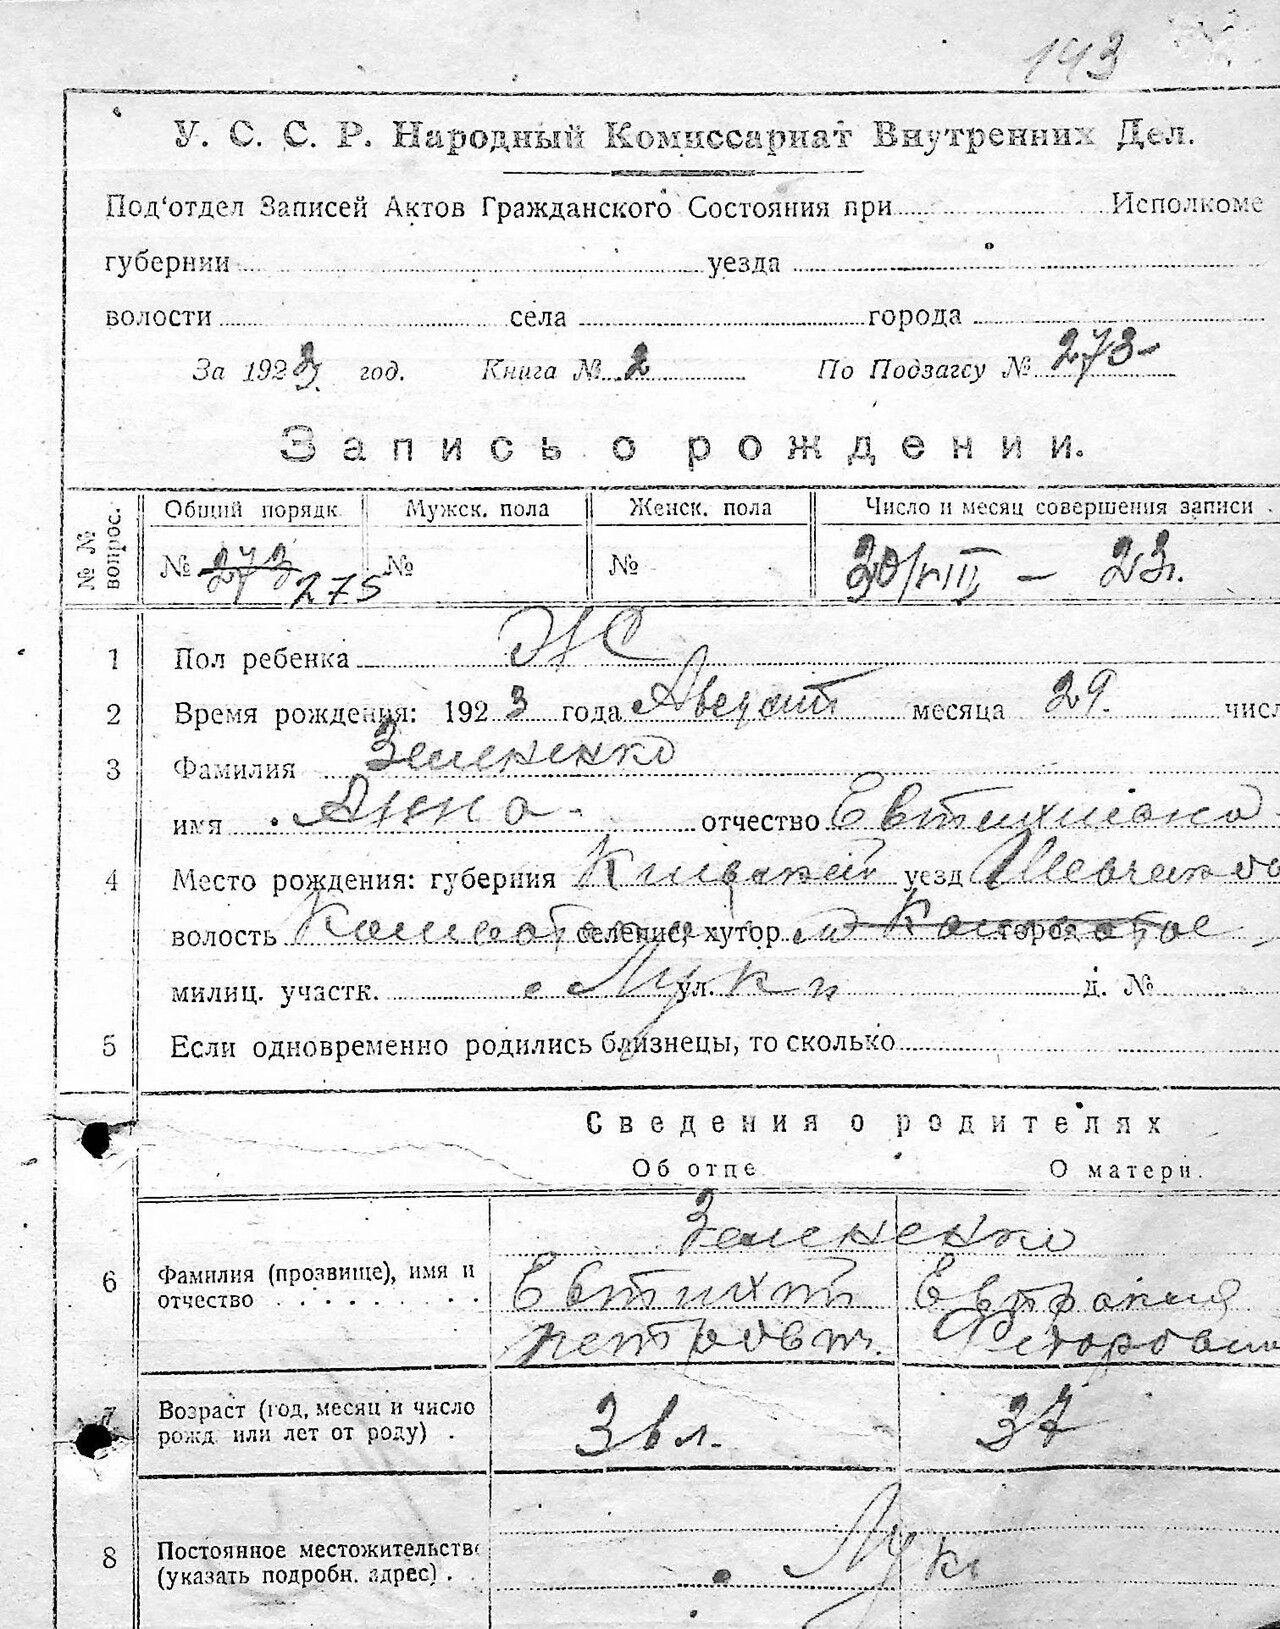 193
У. С. С. Р. Народный Комиссариат Внутренних Дел.
Под‘отдел Записей Актов Гражданского Состояния при Исполкоме
губернии уезда
волости села города
За 1923 год. Книга № 2 По Подзагсу № 273-
Запись о рождении.
№ № вопрос. Общий порядк Мужск. пола Женск. пола Число и месяц совершения записи
№ 273 275 № № 30/VIII – 23.
1 Пол ребенка Ж
2 Время рождения: 1923 года Август месяца 29. числ
3 Фамилия Земененко
имя Анна отчество Евтихиевна
4 Место рождения: губерния Киевской уезд Шевченко
волость селение, хутор город
милиц. участк. Луки ул. д. №
5 Если одновременно родились близнецы, то сколько
Сведения о родителях
Об отце О матери.
Земененко
6 Фамилия (прозвище), имя и
отчество Евтихий Евдокия
Петрович. Федоровна
7 Возраст (год, месяц и число
рожд или лет от роду) . 36 л. 37
8 Постоянное местожительство
(указать подробн. адрес) . Луки